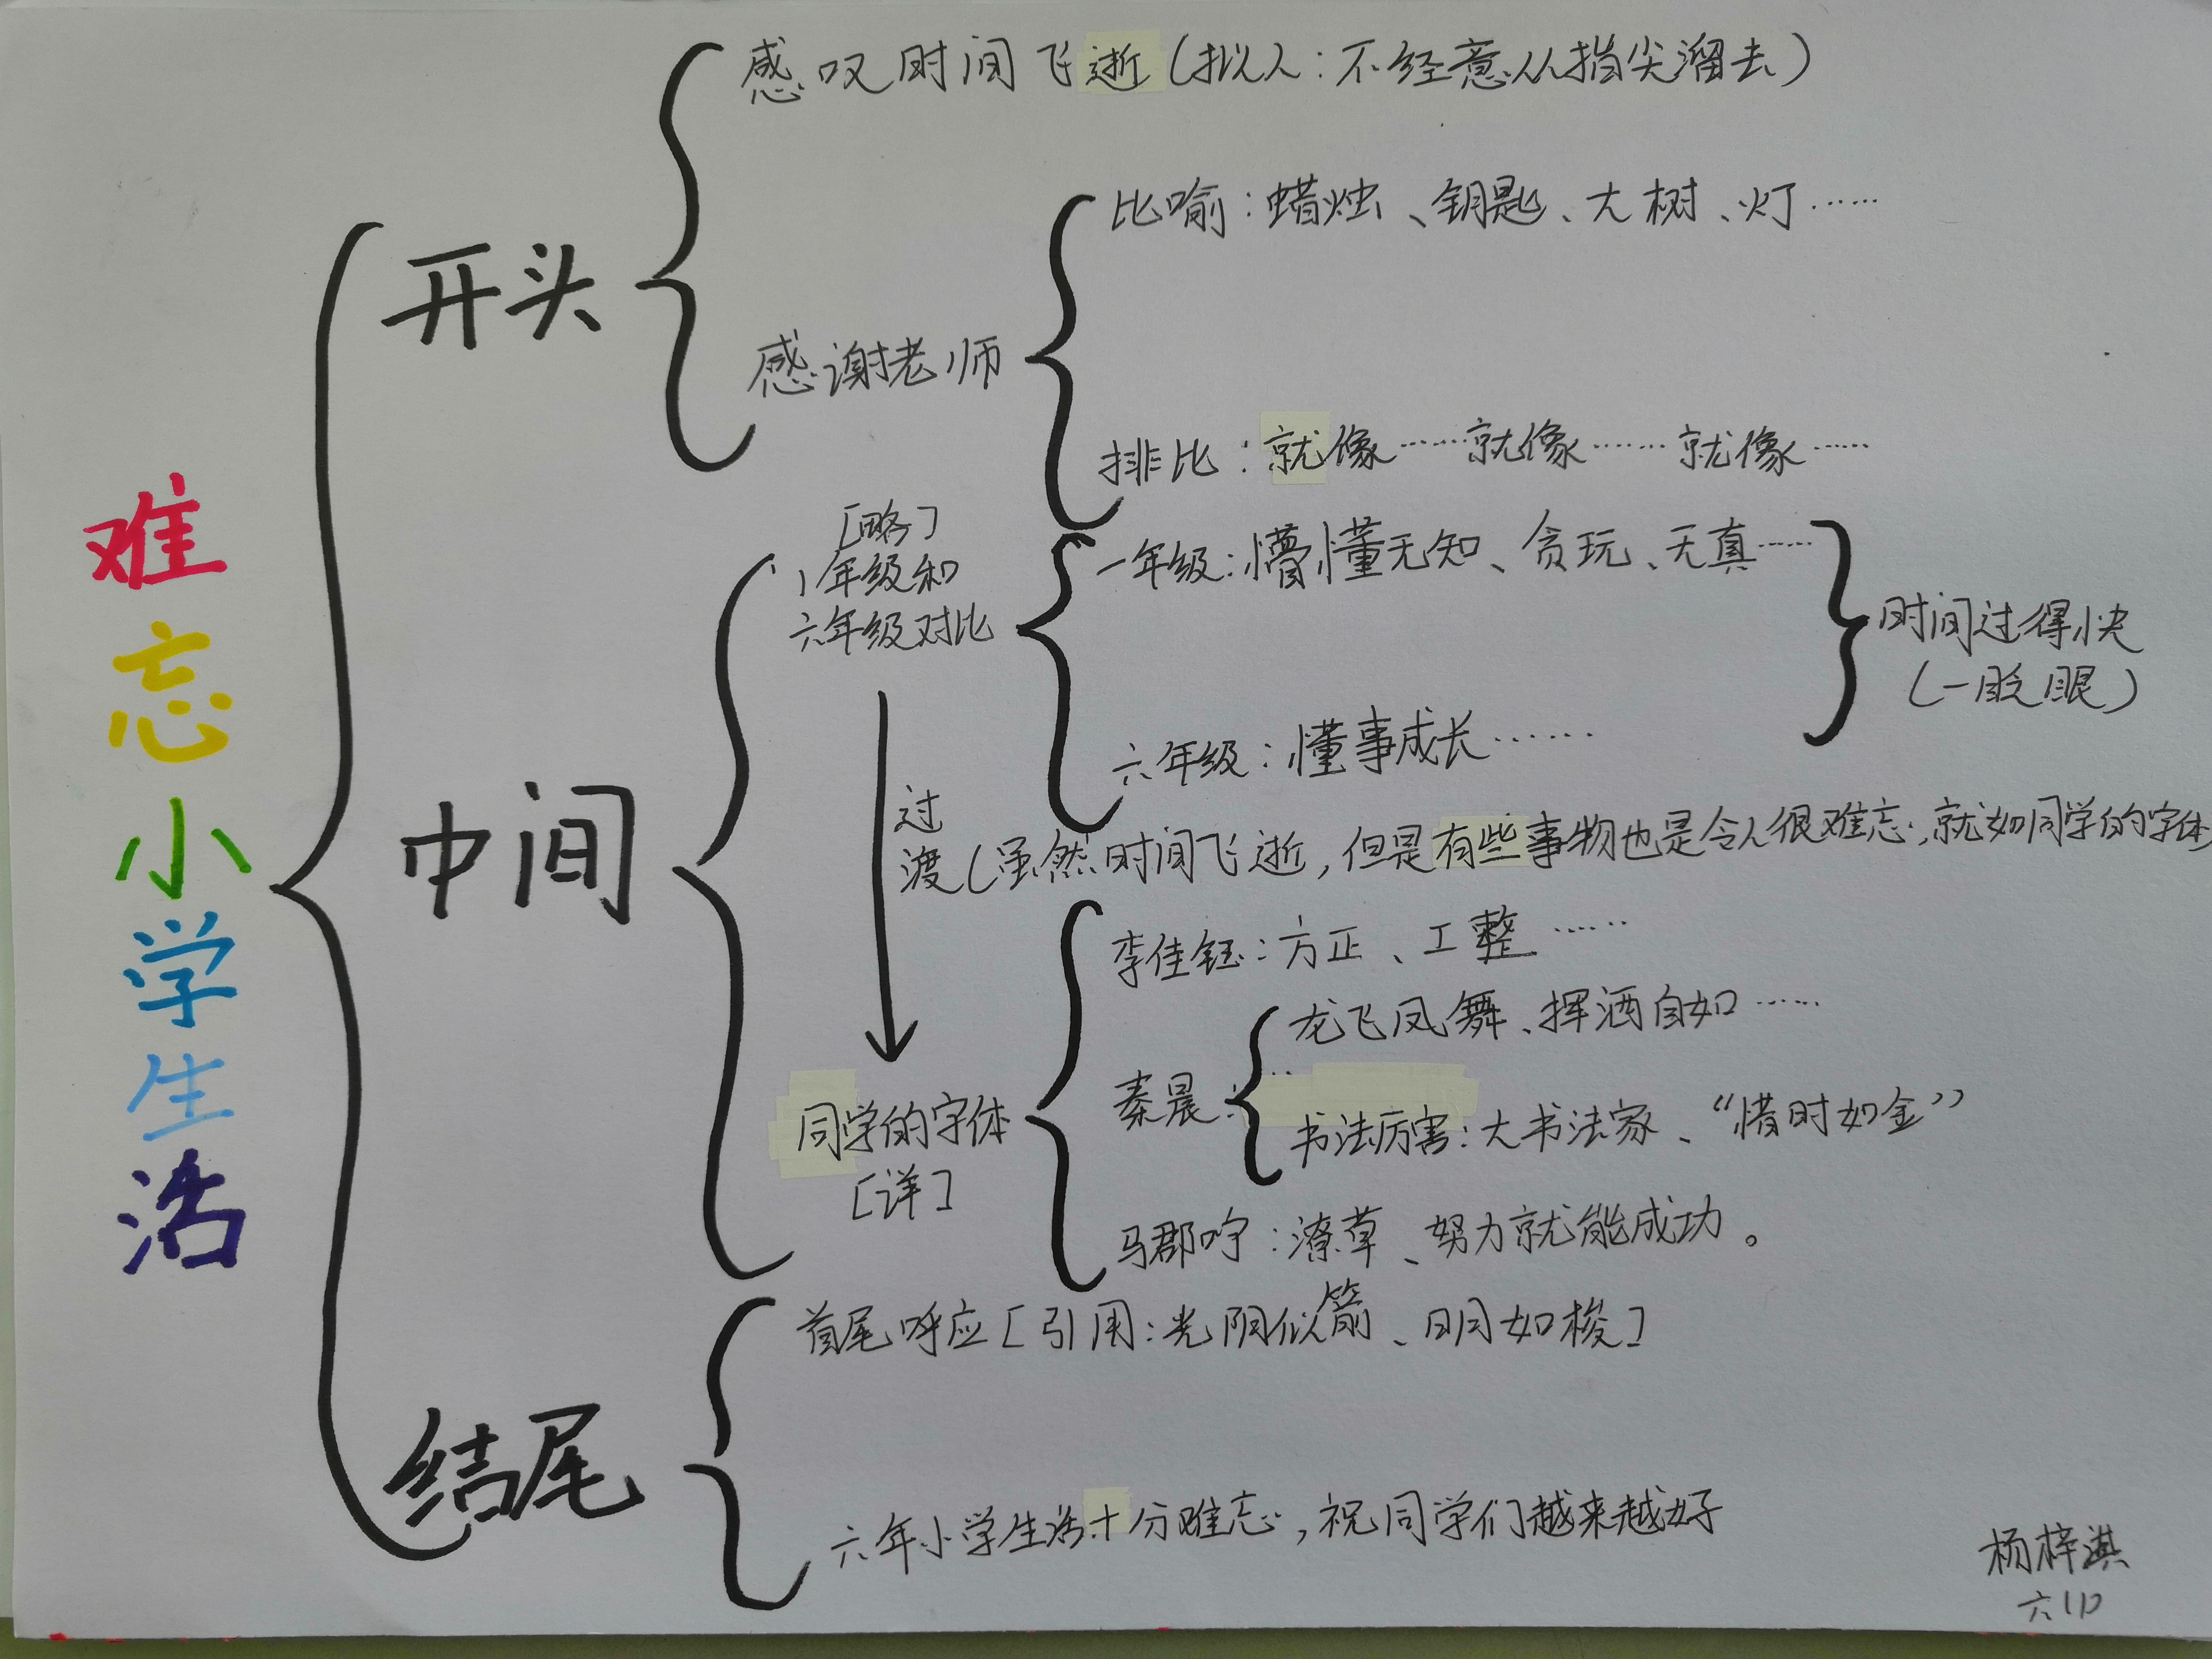 难忘小学生活
开头
感叹时间飞逝(拟人:不经意从指尖溜去)
感谢老师
比喻:蜡烛、钥匙、大树、灯……
排比:就像……就像……就像……
中间
[略]
1年级和
六年级对比
一年级:懵懂无知、贪玩、天真……
六年级:懂事成长……
时间过得快
(一眨眼)
过渡(虽然时间飞逝,但是有些事物也是令人很难忘,就如同学的字体
同学的字体
[详]
李佳钰:方正、工整……
秦晨:
龙飞凤舞、挥洒自如……
书法厉害:大书法家、“惜时如金”
马郡咛:潦草、努力就能成功。
结尾
首尾呼应[引用:光阴似箭、日月如梭]
六年小学生活十分难忘,祝同学们越来越好
杨梓淇